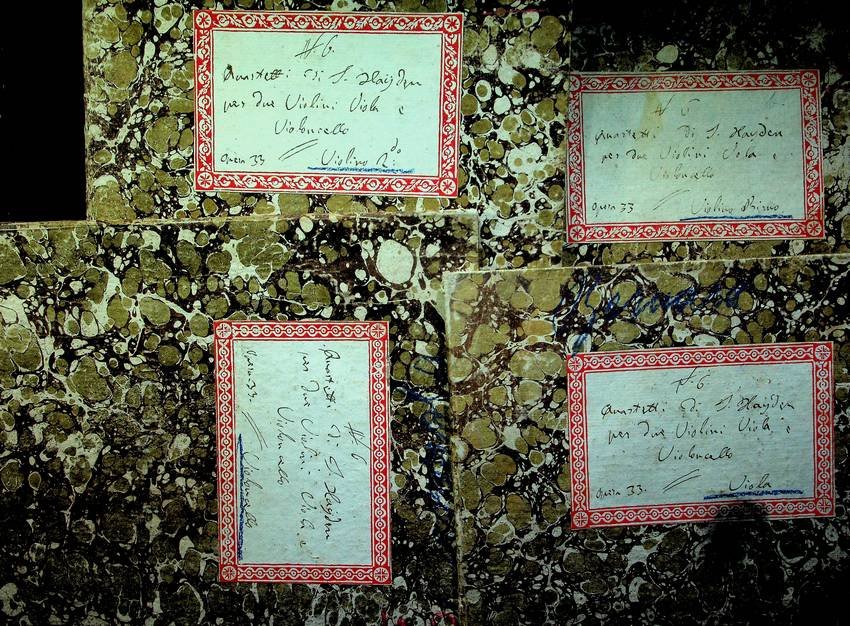 # 6
Quartetti di S. Hayden
per due Violini Viola e
Violoncello
Opera 33
Violino 2:do
# 6
Quartetti di S. Hayden
per due Violini Viola e
Violoncello
Opera 33
Violino Primo
# 6
Quartetti di S. Hayden
per due Violini Viola e
Violoncello
Opera 33.
Violoncello
# 6
Quartetti di S. Hayden
per due Violini Viola e
Violoncello
Opera 33.
Viola